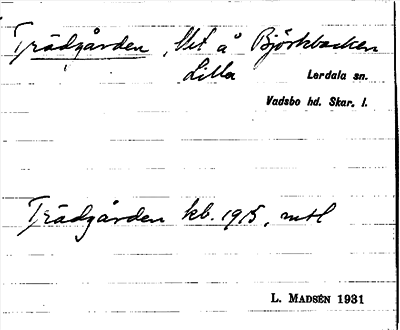 Trädgården, lht å Björkbacken
Lilla Lerdala sn.
Vadsbo hd. Skar. l.
Trädgården kb. 1915, mtl
L. MADSÉN 1931